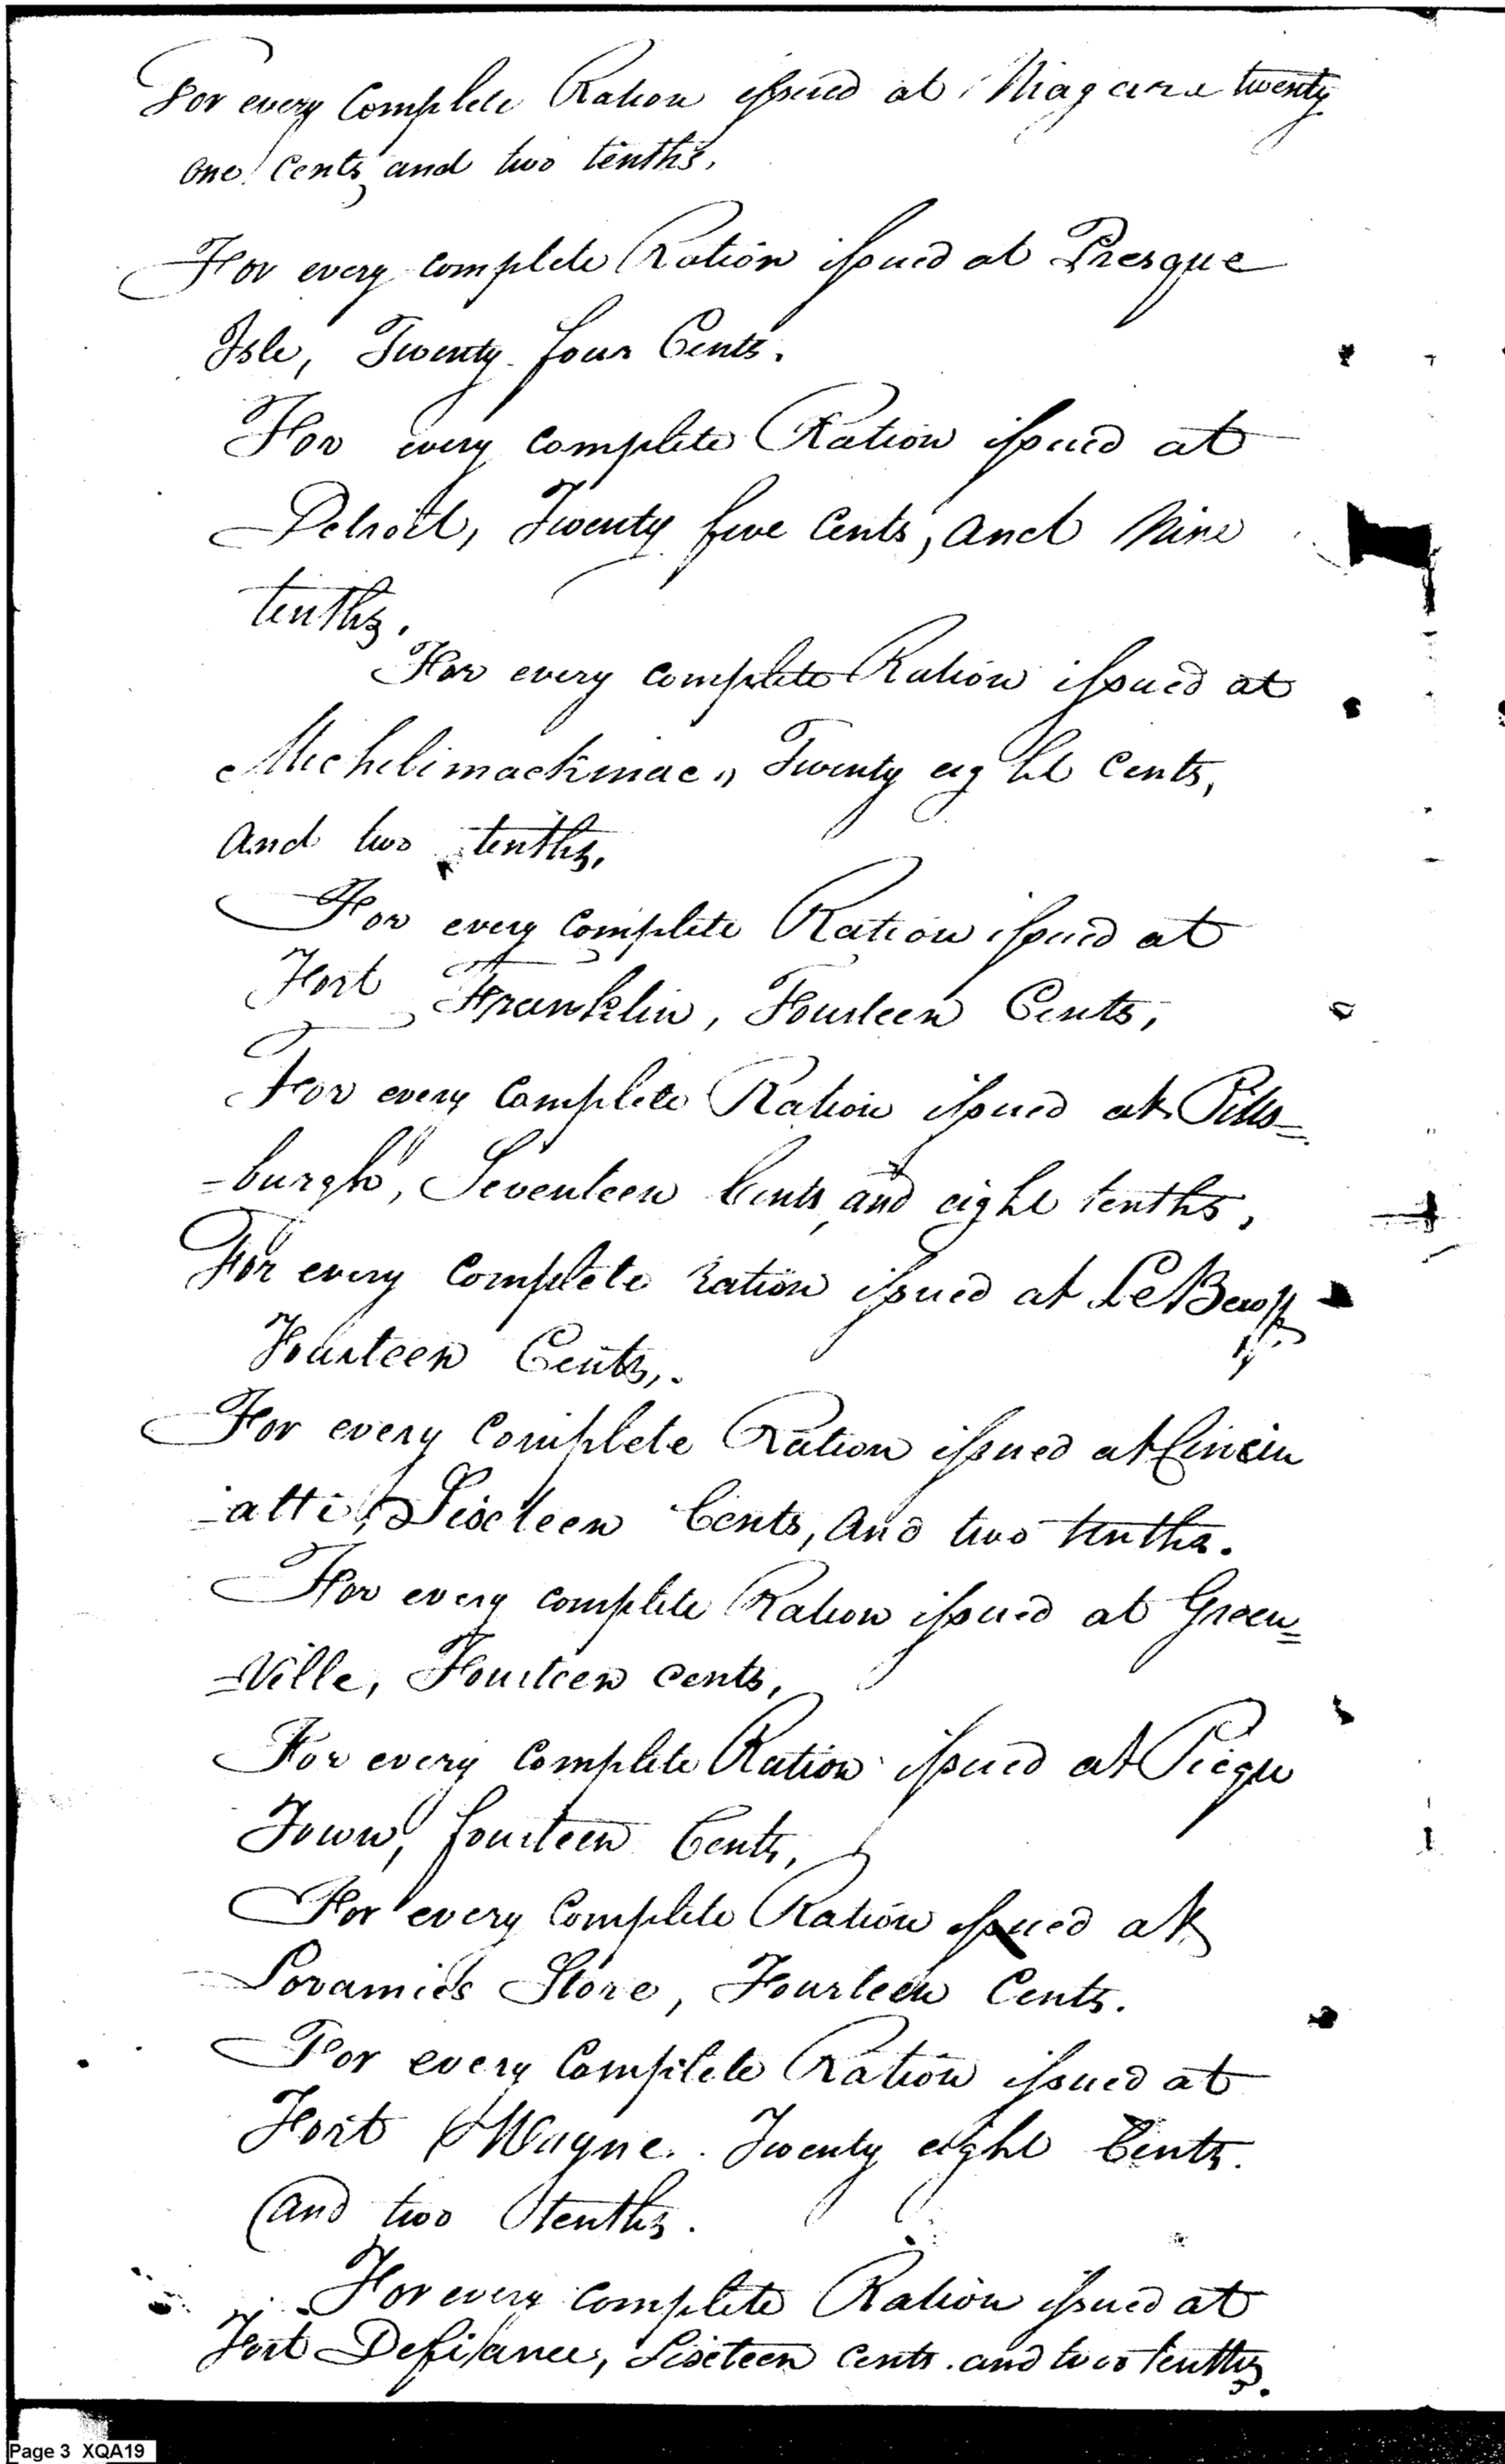 For every Complete Ration issued at Niagara twenty
one Cents and two tenths.
For every complete Ration issued at Presque
Isle, Twenty four Cents.
For every complete Ration issued at
Detroit, Twenty five Cents, and Nine
tenths.
For every complete Ration issued at
Michelimackinac, Twenty eight Cents,
and two tenths.
For every Complete Ration issued at
Fort Franklin, Fourteen Cents,
For every Complete Ration issued at Pitts=
=burgh, Seventeen Cents and eight tenths,
For every Complete ration issued at LeBeuff
Fourteen Cents,.
For every Complete Ration issued at Cincin
-atti, Sixteen Cents, and two tenths.
For every complete Ration issued at Green=
=Ville, Fourteen Cents,
For every Complete Ration issued at Piequ
Town, fourteen Cents,
For every Complete Ration issued at
Loramies Store, Fourteen Cents.
For every Complete Ration issued at
Fort Wayne. Twenty eight Cents.
and two tenths.
For every complete Ration issued at
Fort Defiance, Sixteen Cents. and two tenths.
Page 3 XQA19